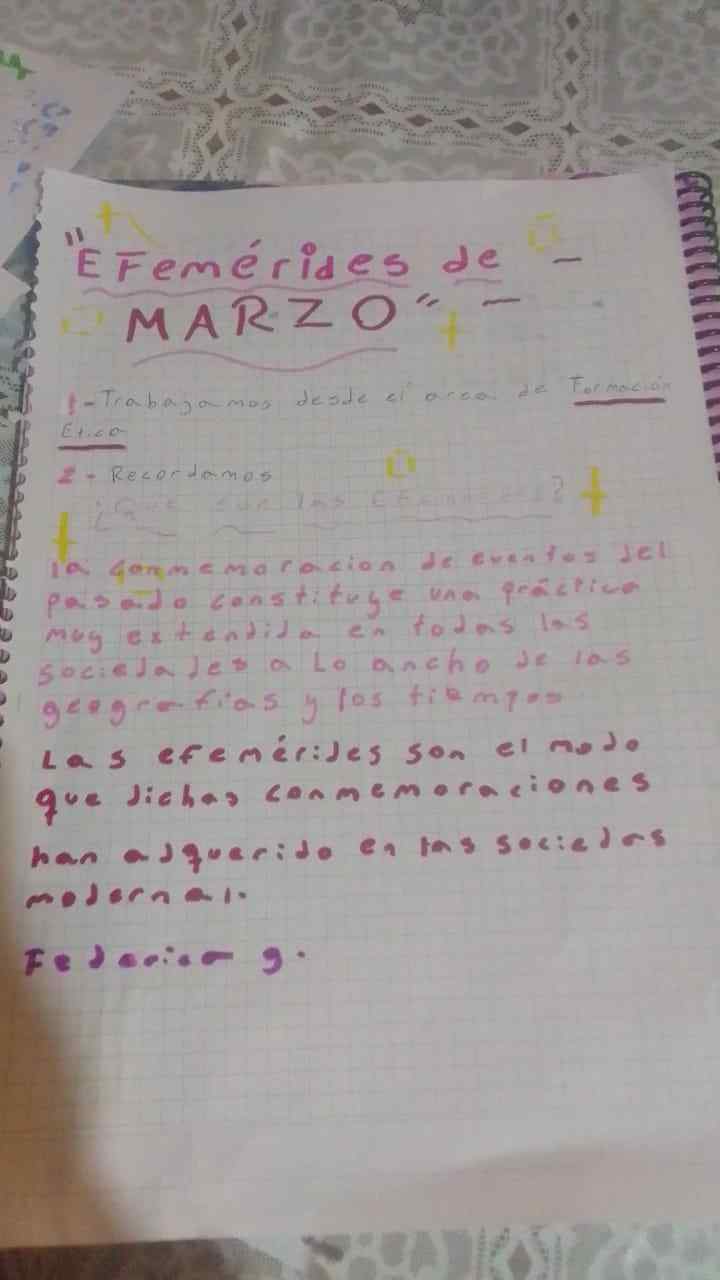 "Efemérides de -
MARZO" -
1-Trabajamos desde el area de Formación
Etica
2- Recordamos
¿Qué son las Efemérides?
la conmemoracion de eventos del
pasado constituye una práctica
muy extendida en todas las
sociedades a Lo ancho de las
geografias y los tiempos
Las efemérides son el modo
que dichas conmemoraciones
han adquerido en las sociedas
modernas.
Federico g.